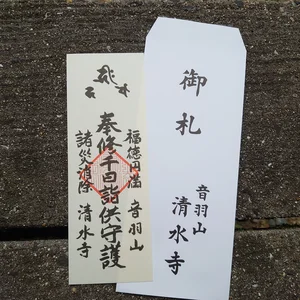 奉修千日詣供守護
福徳円満 音羽山
諸災消除 清水寺
御札
音羽山
清水寺